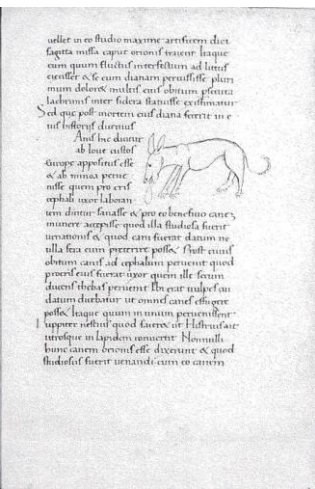 uellet in eo studio maxime artificem dici
sagitta missa caput orionis traiecit Itaque
eum quum fluctus interfectum ad littus
eiecisset & se eum dianam percussisse pluri
mum dolor& multis eius obitum psecuta
lachrimis inter sidera statuisse existimatur
Sed que post mortem eius diana fecerit in e
ius historijs dicimus
Anis hic dicitur
ab Ioue custos
Europe appositus esse
& ab minoa perue
nisse quem procris
cephali uxor laboran
tem dicitur sanasse & pro eo beneficio canez
munere accepisse quod illa studiosa fuerit
uenationis & quod cani fuerat datum ne
ulla fera eum preterire posset Post eius
obitum canis ad cephalum peruenit quod
procris eius fuerat uxor quem ille secum
ducens thebas peruenit Ibi erat uulpes cui
datum dicebatur ut omnes canes effugere
posset Itaque quum in unum peruenissent
Iuppiter nescius quod faceret ut Histrus ait
utrosque in lapidem conuertit Nonnulli
hunc canem orionis esse dixerunt & quod
studiosus fuerit uenandi cum eo canem